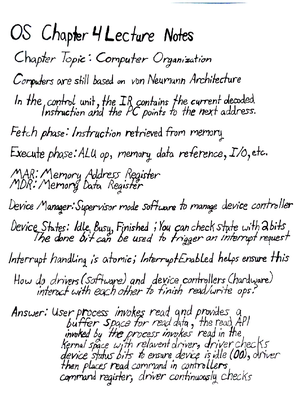 OS Chapter 4 Lecture Notes
Chapter Topic: Computer Organization
Computers are still based on von Neumann Architecture
In the control unit, the IR contains the current decoded
Instruction and the PC points to the next address.
Fetch phase: Instruction retrieved from memory
Execute phase: ALU op, memory data reference, I/O, etc.
MAR: Memory Address Register
MDR: Memory Data Register
Device Manager: Supervisor mode software to manage device controller
Device States: Idle, Busy, Finished; You can check state with 2 bits
The done bit can be used to trigger an interrupt request
Interrupt handling is atomic; InterruptEnabled helps ensure this
How do drivers (software) and device controllers (hardware)
interact with each other to finish read/write ops?
Answer: User process invokes read and provides a
buffer space for read data, the read API
invoked by the process invokes read in the
kernel space with relavent driver, driver checks
device status bits to ensure device is idle (00), driver
then places read command in controllers
command register, driver continuously checks